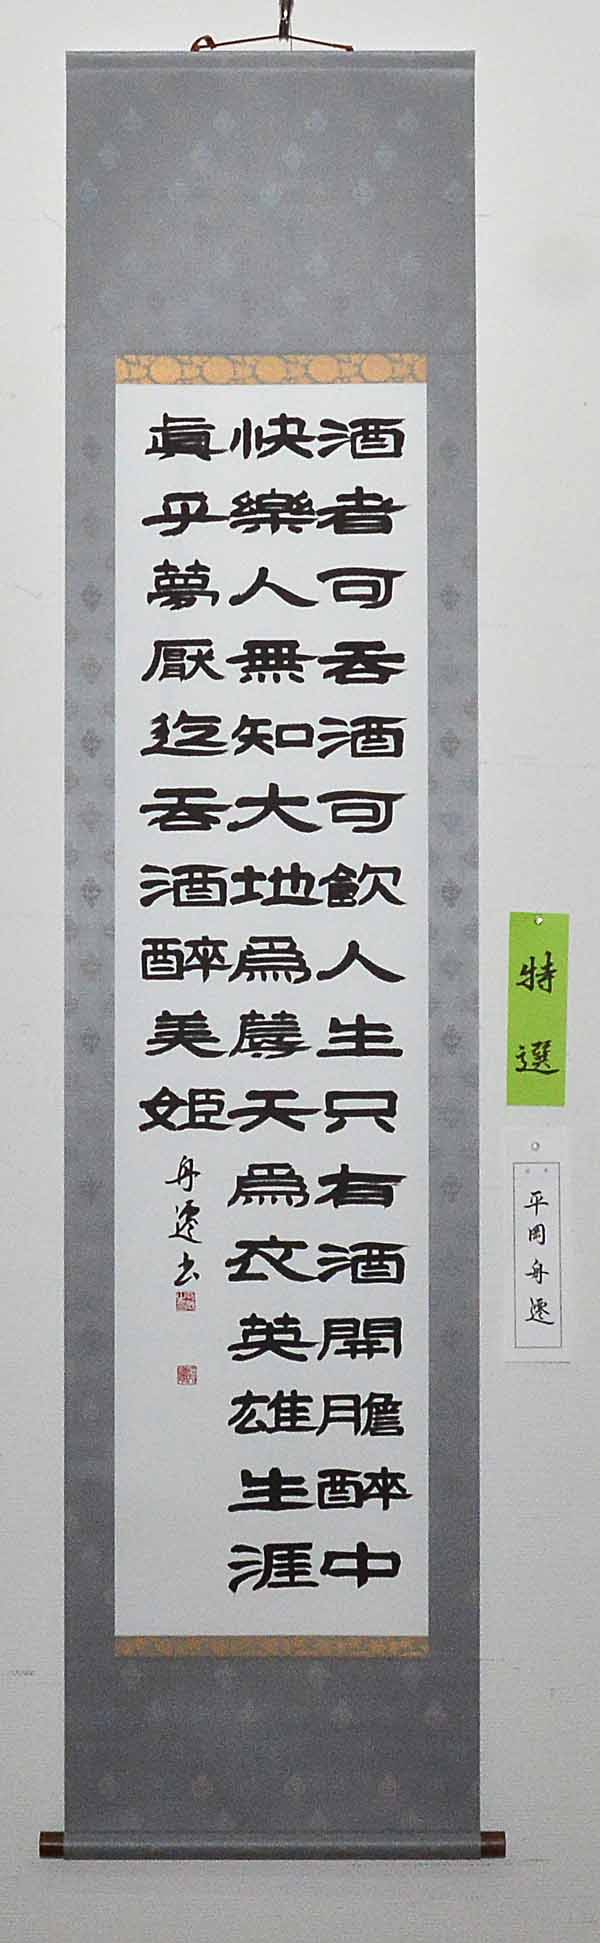 酒者可吞酒可飲人生只有酒開膽醉中
快樂人無知大地爲蓐天爲衣英雄生涯
眞乎夢厭迄吞酒醉美姫
舟遷書
特選
平岡舟遷